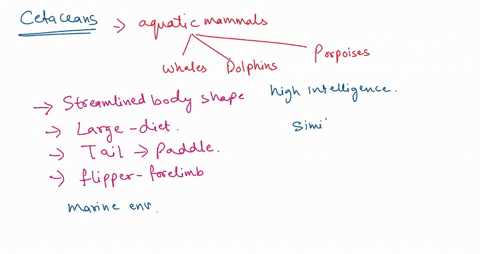 Cetaceans → aquatic mammals
Whales Dolphins Porpoises
→ Streamlined body shape high Intelligence.
→ Large-diet. Simi
→ Tail → Paddle.
→ flipper-forelimb
Marine env.